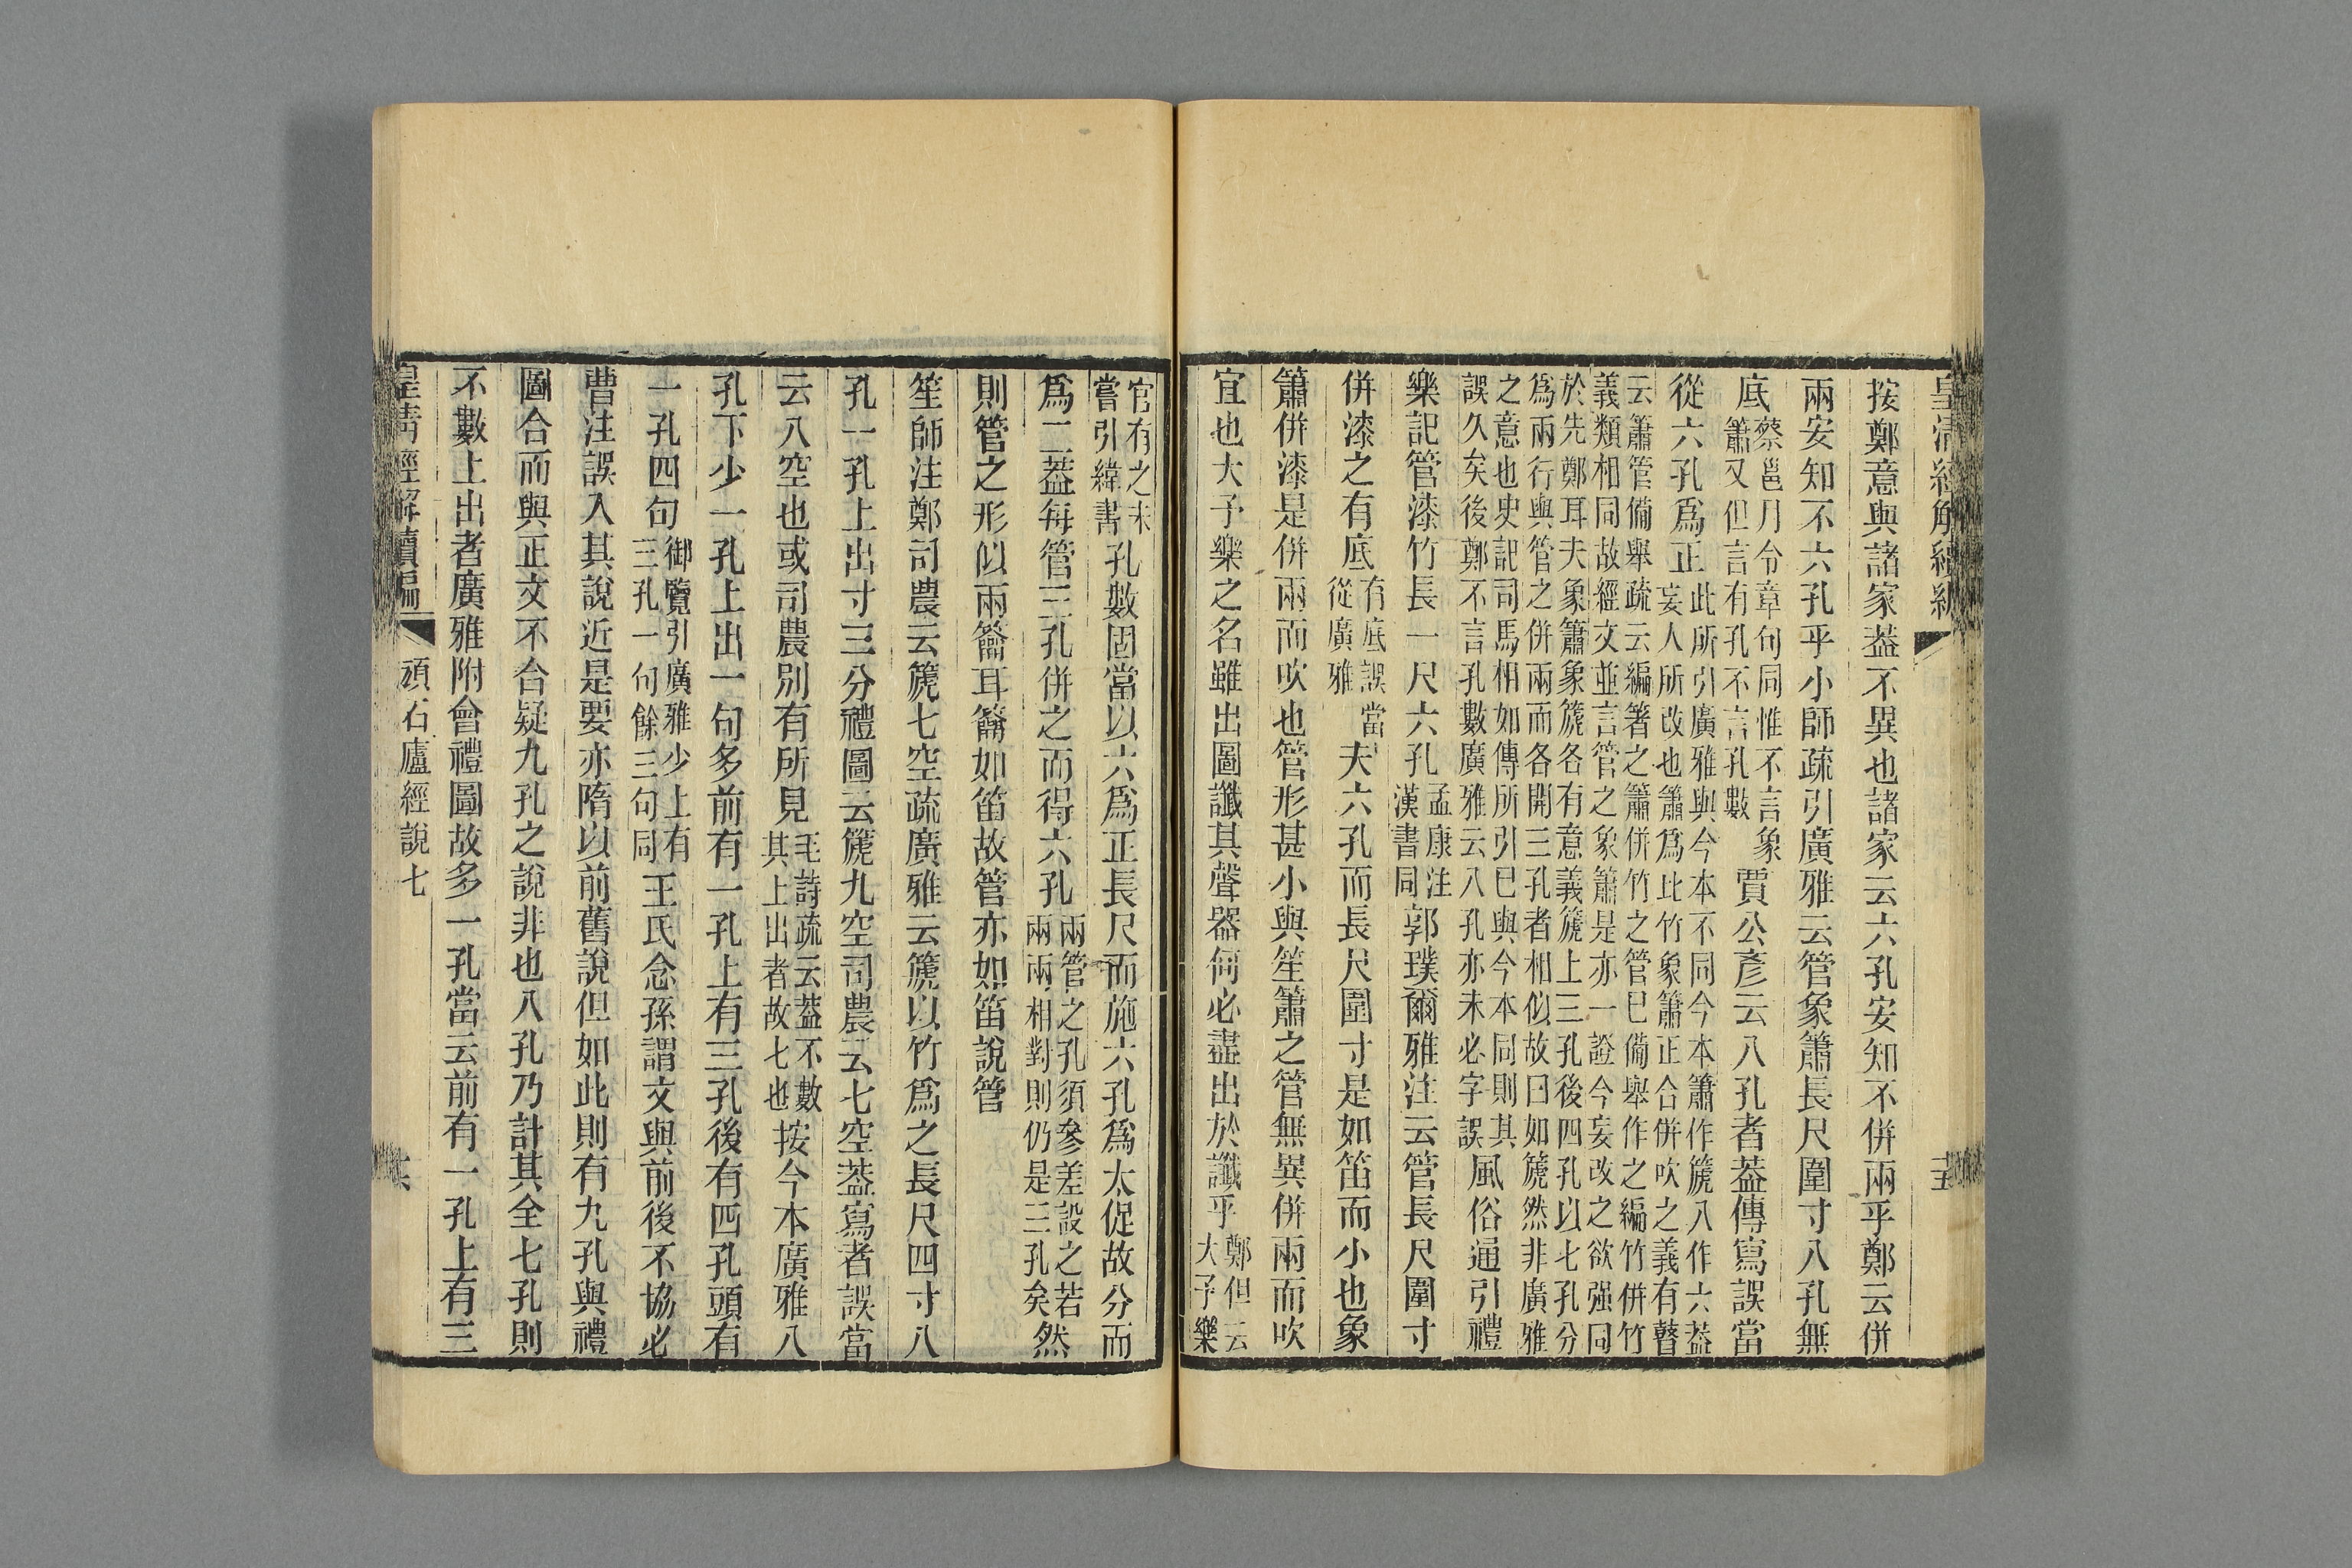 皇清經解續編
十五
按鄭意與諸家葢不異也諸家云六孔安知不併兩乎鄭云併
兩安知不六孔乎小師疏引廣雅云管象簫長尺圍寸八孔無
底蔡邕月令章句同惟不言象簫又但言有孔不言孔數賈公彥云八孔者葢傳寫誤當
從六孔爲正此所引廣雅與今本不同今本簫作篪八作六葢妄人所改也簫爲比竹象簫正合併吹之義有瞽
云簫管備舉疏云編箸之簫併竹之管巳備舉作之編竹併竹義類相同故經文並言管之象簫是亦一證今妄改之欲强同
於先鄭耳夫象簫象篪各有意義篪上三孔後四孔以七孔分爲兩行與管之併兩而各開三孔者相似故曰如篪然非廣雅
之意也史記司馬相如傳所引巳與今本同則其誤久矣後鄭不言孔數廣雅云八孔亦未必字誤風俗通引禮
樂記管漆竹長一尺六孔孟康注漢書同郭璞爾雅注云管長尺圍寸
併漆之有底有底誤當從廣雅夫六孔而長尺圍寸是如笛而小也象
簫併漆是併兩而吹也管形甚小與笙簫之管無異併兩而吹
宜也大予樂之名雖出圖讖其聲器何必盡出於讖乎鄭但云大予樂
官有之未嘗引緯書孔數固當以六爲正長尺而施六孔爲太促故分而
爲二葢每管三孔併之而得六孔兩管之孔須參差設之若兩兩相對則仍是三孔矣然
則管之形似兩籥耳籥如笛故管亦如笛說管
笙師注鄭司農云篪七空疏廣雅云篪以竹爲之長尺四寸八
孔一孔上出寸三分禮圖云篪九空司農云七空葢寫者誤當
云八空也或司農別有所見毛詩疏云葢不數其上出者故七也按今本廣雅八
孔下少一孔上出一句多前有一孔上有三孔後有四孔頭有
一孔四句御覽引廣雅少上有三孔一句餘三句同王氏念孫謂文與前後不協必
曹注誤入其說近是要亦隋以前舊說但如此則有九孔與禮
圖合而與正文不合疑九孔之說非也八孔乃計其全七孔則
不數上出者廣雅附會禮圖故多一孔當云前有一孔上有三
皇清經解續編
頑石廬經說七